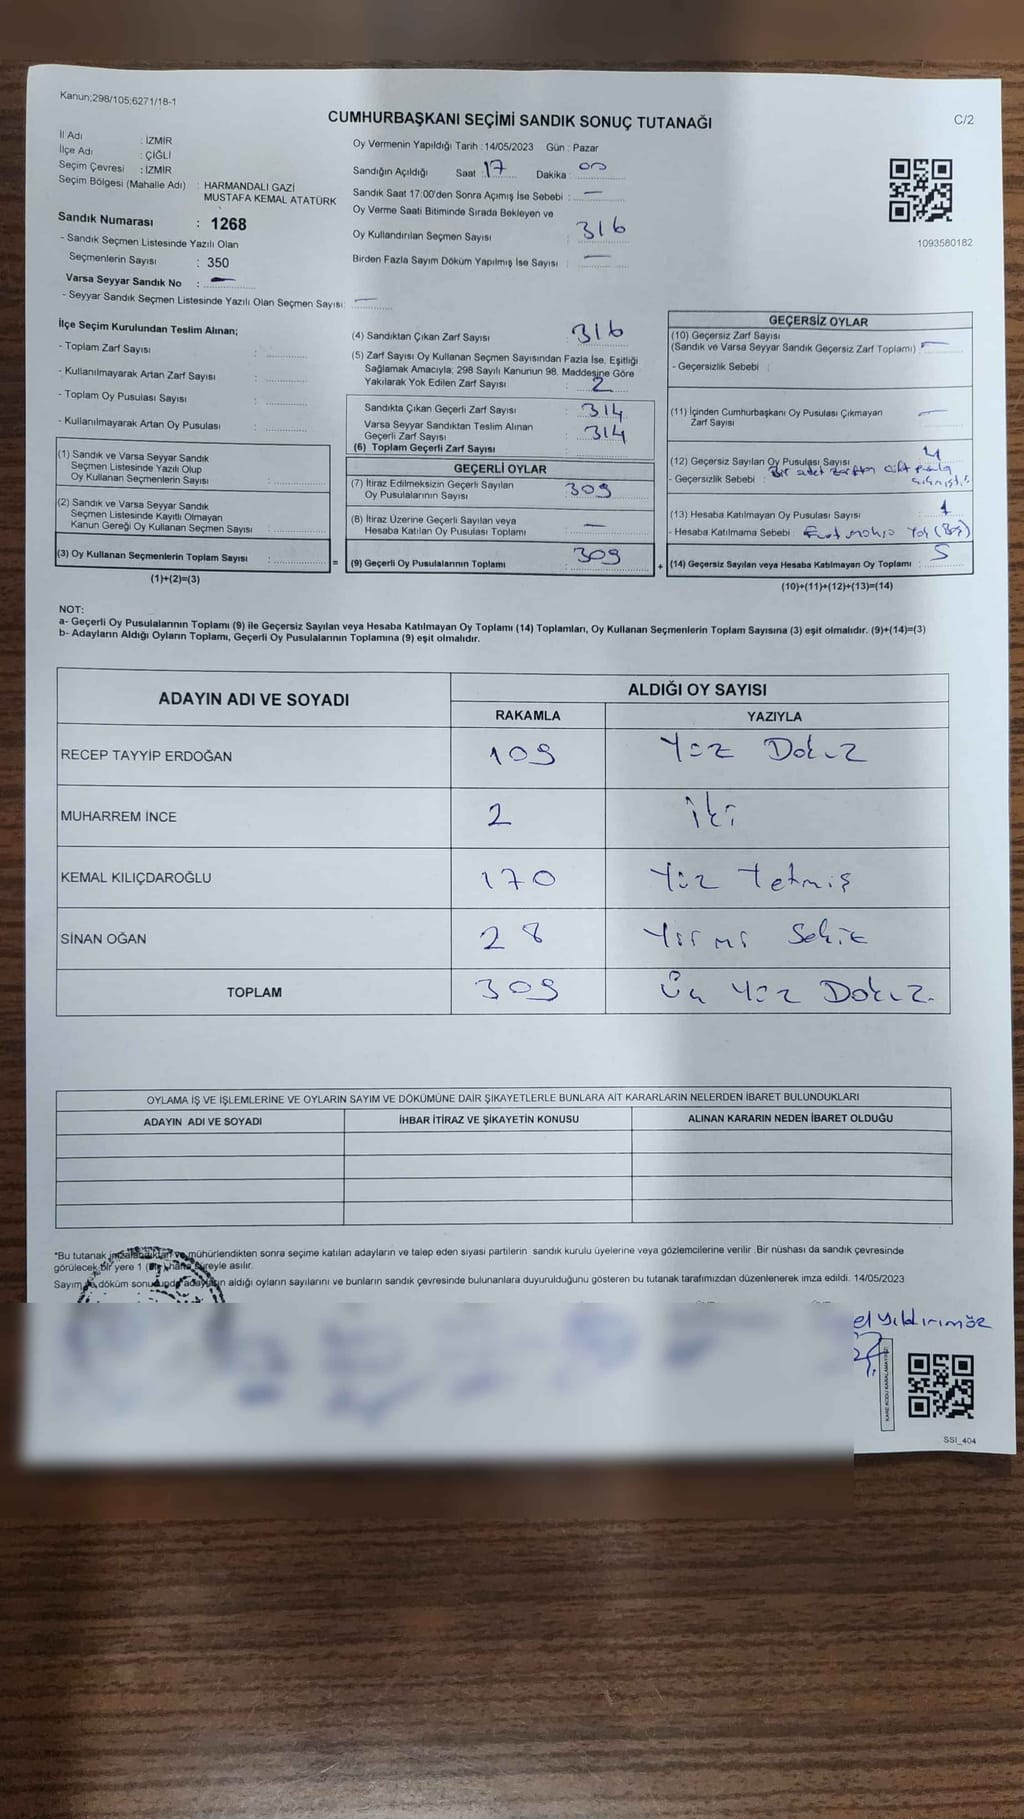 Kanun;298/105;6271/18-1
CUMHURBAŞKANI SEÇİMİ SANDIK SONUÇ TUTANAĞI
C/2
İl Adı : İZMİR
İlçe Adı : ÇİĞLİ
Seçim Çevresi : İZMİR
Seçim Bölgesi (Mahalle Adı) : HARMANDALI GAZİ
MUSTAFA KEMAL ATATÜRK
Sandık Numarası : 1268
- Sandık Seçmen Listesinde Yazılı Olan
Seçmenlerin Sayısı : 350
Varsa Seyyar Sandık No : —
- Seyyar Sandık Seçmen Listesinde Yazılı Olan Seçmen Sayısı: —
Oy Vermenin Yapıldığı Tarih : 14/05/2023 Gün : Pazar
Sandığın Açıldığı Saat : 17 Dakika : 00
Sandık Saat 17:00'den Sonra Açımış İse Sebebi : —
Oy Verme Saati Bitiminde Sırada Bekleyen ve
Oy Kullandırılan Seçmen Sayısı : 316
Birden Fazla Sayım Döküm Yapılmış İse Sayısı : —
1093580182
İlçe Seçim Kurulundan Teslim Alınan;
- Toplam Zarf Sayısı :
- Kullanılmayarak Artan Zarf Sayısı :
- Toplam Oy Pusulası Sayısı :
- Kullanılmayarak Artan Oy Pusulası :
(1) Sandık ve Varsa Seyyar Sandık
Seçmen Listesinde Yazılı Olup
Oy Kullanan Seçmenlerin Sayısı :
(2) Sandık ve Varsa Seyyar Sandık
Seçmen Listesinde Kayıtlı Olmayan
Kanun Gereği Oy Kullanan Seçmen Sayısı :
(3) Oy Kullanan Seçmenlerin Toplam Sayısı :
(1)+(2)=(3)
(4) Sandıktan Çıkan Zarf Sayısı : 316
(5) Zarf Sayısı Oy Kullanan Seçmen Sayısından Fazla İse, Eşitliği
Sağlamak Amacıyla; 298 Sayılı Kanunun 98. Maddesine Göre
Yakılarak Yok Edilen Zarf Sayısı : 2
Sandıkta Çıkan Geçerli Zarf Sayısı : 314
Varsa Seyyar Sandıktan Teslim Alınan
Geçerli Zarf Sayısı : 314
(6) Toplam Geçerli Zarf Sayısı
GEÇERLİ OYLAR
(7) İtiraz Edilmeksizin Geçerli Sayılan
Oy Pusulalarının Sayısı : 309
(8) İtiraz Üzerine Geçerli Sayılan veya
Hesaba Katılan Oy Pusulası Toplamı : —
= (9) Geçerli Oy Pusulalarının Toplamı 309 +
GEÇERSİZ OYLAR
(10) Geçersiz Zarf Sayısı
(Sandık ve Varsa Seyyar Sandık Geçersiz Zarf Toplamı) : —
- Geçersizlik Sebebi :
(11) İçinden Cumhurbaşkanı Oy Pusulası Çıkmayan
Zarf Sayısı —
(12) Geçersiz Sayılan Oy Pusulası Sayısı : 4
- Geçersizlik Sebebi : Bir adet zarftan çift pusula
çıkmıştır
(13) Hesaba Katılmayan Oy Pusulası Sayısı : 1
- Hesaba Katılmama Sebebi : Evet mührü Yok (Boş)
(14) Geçersiz Sayılan veya Hesaba Katılmayan Oy Toplamı : 5
(10)+(11)+(12)+(13)=(14)
NOT:
a- Geçerli Oy Pusulalarının Toplamı (9) ile Geçersiz Sayılan veya Hesaba Katılmayan Oy Toplamı (14) Toplamları, Oy Kullanan Seçmenlerin Toplam Sayısına (3) eşit olmalıdır. (9)+(14)=(3)
b- Adayların Aldığı Oyların Toplamı, Geçerli Oy Pusulalarının Toplamına (9) eşit olmalıdır.
ADAYIN ADI VE SOYADI ALDIĞI OY SAYISI
RAKAMLA YAZIYLA
RECEP TAYYİP ERDOĞAN 109 Yüz Dokuz
MUHARREM İNCE 2 İki
KEMAL KILIÇDAROĞLU 170 Yüz Yetmiş
SİNAN OĞAN 28 Yirmi Sekiz
TOPLAM 309 Üç Yüz Dokuz.
OYLAMA İŞ VE İŞLEMLERİNE VE OYLARIN SAYIM VE DÖKÜMÜNE DAİR ŞİKAYETLERLE BUNLARA AİT KARARLARIN NELERDEN İBARET BULUNDUKLARI
ADAYIN ADI VE SOYADI İHBAR İTİRAZ VE ŞİKAYETİN KONUSU ALINAN KARARIN NEDEN İBARET OLDUĞU
*Bu tutanak imzalandıktan ve mühürlendikten sonra seçime katılan adayların ve talep eden siyasi partilerin sandık kurulu üyelerine veya gözlemcilerine verilir .Bir nüshası da sandık çevresinde
görülecek bir yere 1 (Bir) hafta süreyle asılır.
Sayım ve döküm sonucunda adayların aldığı oyların sayılarını ve bunların sandık çevresinde bulunanlara duyurulduğunu gösteren bu tutanak tarafımızdan düzenlenerek imza edildi. 14/05/2023
el yıldırımöz
KARE KODU KARALAMAYINIZ!
SSI_404